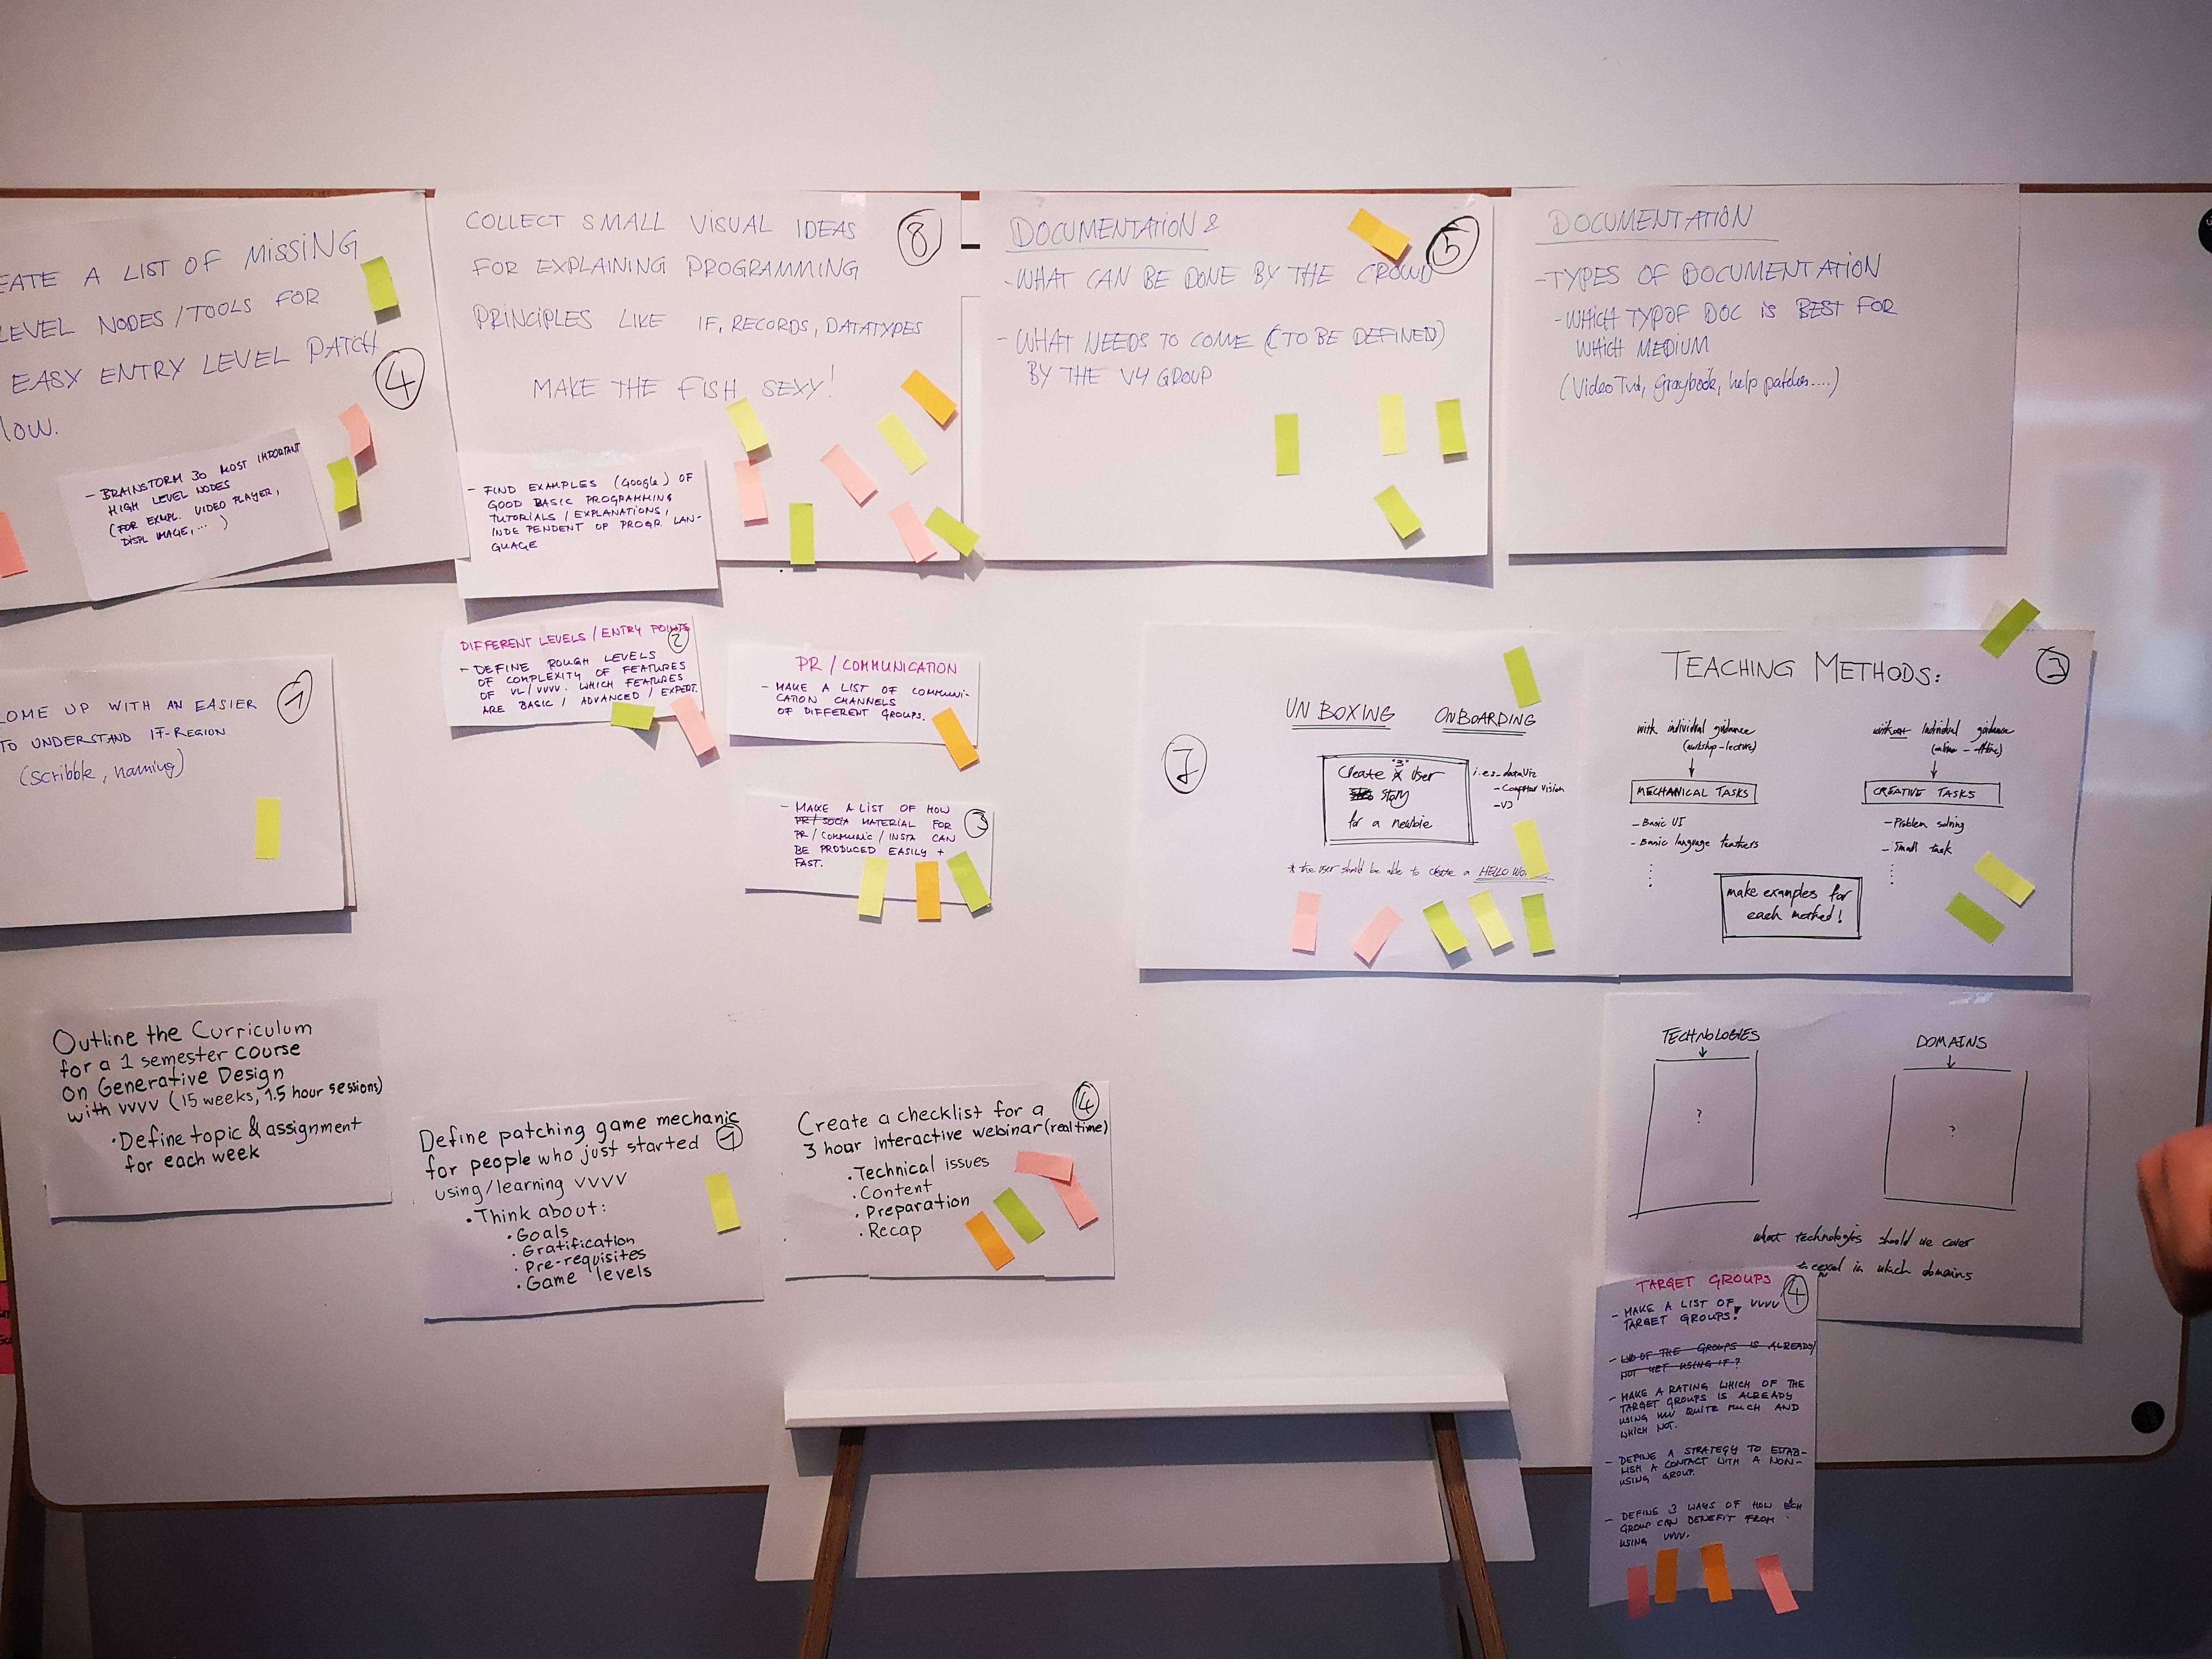 EATE A LIST OF MISSING
LEVEL NODES/TOOLS FOR
EASY ENTRY LEVEL PATCH
low.
4
- BRAINSTORM 30 MOST IMPORTANT
HIGH LEVEL NODES
(FOR EXMPL. VIDEO PLAYER,
DISPL IMAGE, ... )
COLLECT SMALL VISUAL IDEAS
FOR EXPLAINING PROGRAMMING
PRINCIPLES LIKE IF, RECORDS, DATATYPES
MAKE THE FISH SEXY!
8
- FIND EXAMPLES (Google) OF
GOOD BASIC PROGRAMMING
TUTORIALS / EXPLANATIONS,
INDEPENDENT OF PROGR. LAN-
GUAGE
DOCUMENTATION &
5
- WHAT CAN BE DONE BY THE CROWD
- WHAT NEEDS TO COME (TO BE DEFINED)
BY THE V4 GROUP
DOCUMENTATION
- TYPES OF DOCUMENTATION
- WHICH TYPOF DOC IS BEST FOR
WHICH MEDIUM
(VideoTut, Graybook, help patches....)
COME UP WITH AN EASIER
TO UNDERSTAND IF-REGION
(scribble, naming)
1
DIFFERENT LEVELS / ENTRY POINTS
2
- DEFINE ROUGH LEVELS
OF COMPLEXITY OF FEATURES
OF VL/VVVV. WHICH FEATURES
ARE BASIC / ADVANCED / EXPERT.
PR / COMMUNICATION
- MAKE A LIST OF COMMUNI-
CATION CHANNELS
OF DIFFERENT GROUPS.
- MAKE A LIST OF HOW
PR/SOCIA MATERIAL FOR
PR/COMMUNIC/INSTA CAN
BE PRODUCED EASILY +
FAST.
3
7
UNBOXING ONBOARDING
Create "3" User
story
for a newbie
i.e:- dataViz
- Computer Vision
- VJ
* the user should be able to create a HELLO WO
TEACHING METHODS:
3
with individual guidance
(workshop-lecture)
MECHANICAL TASKS
- Basic UI
- Basic language feathers
without individual guidance
(online - offline)
CREATIVE TASKS
- Problem solving
- Small task
make examples for
each method!
Outline the Curriculum
for a 1 semester course
on Generative Design
with vvvv (15 weeks, 1.5 hour sessions)
• Define topic & assignment
for each week
Define patching game mechanic
for people who just started
using/learning vvvv
1
• Think about:
• Goals
• Gratification
• Pre-requisites
• Game levels
Create a checklist for a
3 hour interactive webinar (real time)
4
• Technical issues
• Content
• Preparation
• Recap
TECHNOLOGIES
?
DOMAINS
?
what technologies should we cover
to excel in which domains
TARGET GROUPS
4
- MAKE A LIST OF VVVV
TARGET GROUPS!
OF THE GROUPS IS ALREADY/
NOT YET USING IT?
- MAKE A RATING WHICH OF THE
TARGET GROUPS IS ALREADY
USING VVVV QUITE MUCH AND
WHICH NOT.
- DEFINE A STRATEGY TO ESTAB-
LISH A CONTACT WITH A NON-
USING GROUP.
- DEFINE 3 WAYS OF HOW ECH
GROUP CAN BENEFIT FROM
USING VVVV.